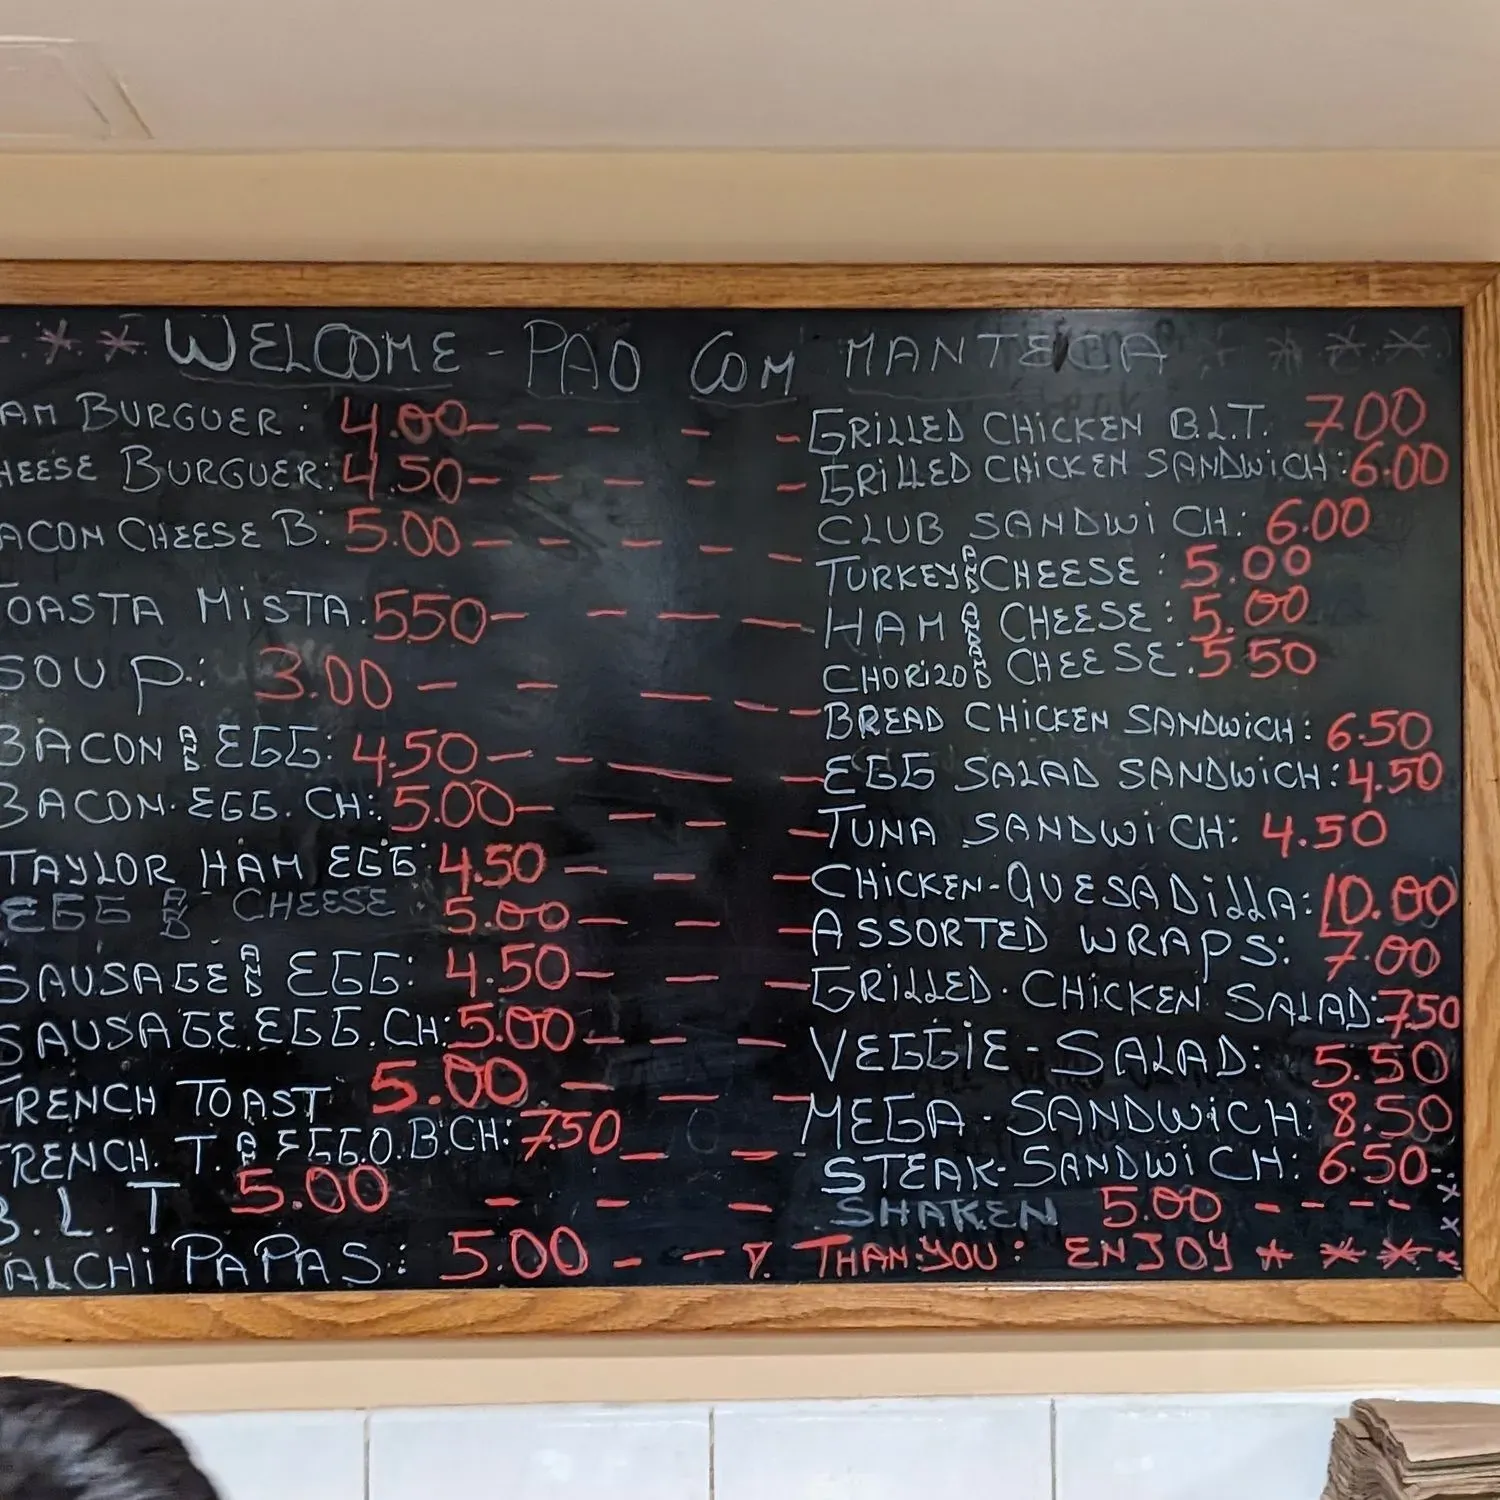 * * WELCOME - PAO COM MANTECA * * * *
AM BURGUER: 4.00
HEESE BURGUER: 4.50
ACON CHEESE B: 5.00
TOASTA MISTA: 550
SOUP: 3.00
BACON AND EGG: 4.50
BACON. EGG. CH: 5.00
TAYLOR HAM EGG: 4.50
EGG AND CHEESE 5.00
SAUSAGE AND EGG: 4.50
SAUSAGE. EGG. CH: 5.00
FRENCH TOAST 5.00
FRENCH. T. EGG O. B. CH: 7.50
B.L.T 5.00
ALCHI PAPAS: 5.00
GRILLED CHICKEN B.L.T. 7.00
GRILLED CHICKEN SANDWICH: 6.00
CLUB SANDWICH: 6.00
TURKEY AND CHEESE: 5.00
HAM AND CHEESE: 5.00
CHORIZO AND CHEESE: 5.50
BREAD CHICKEN SANDWICH: 6.50
EGG SALAD SANDWICH: 4.50
TUNA SANDWICH: 4.50
CHICKEN-QUESADILLA: 10.00
ASSORTED WRAPS: 7.00
GRILLED. CHICKEN SALAD: 7.50
VEGGIE-SALAD: 5.50
MEGA-SANDWICH: 8.50
STEAK-SANDWICH: 6.50
SHAKEN 5.00
THAN.YOU: ENJOY * * * *